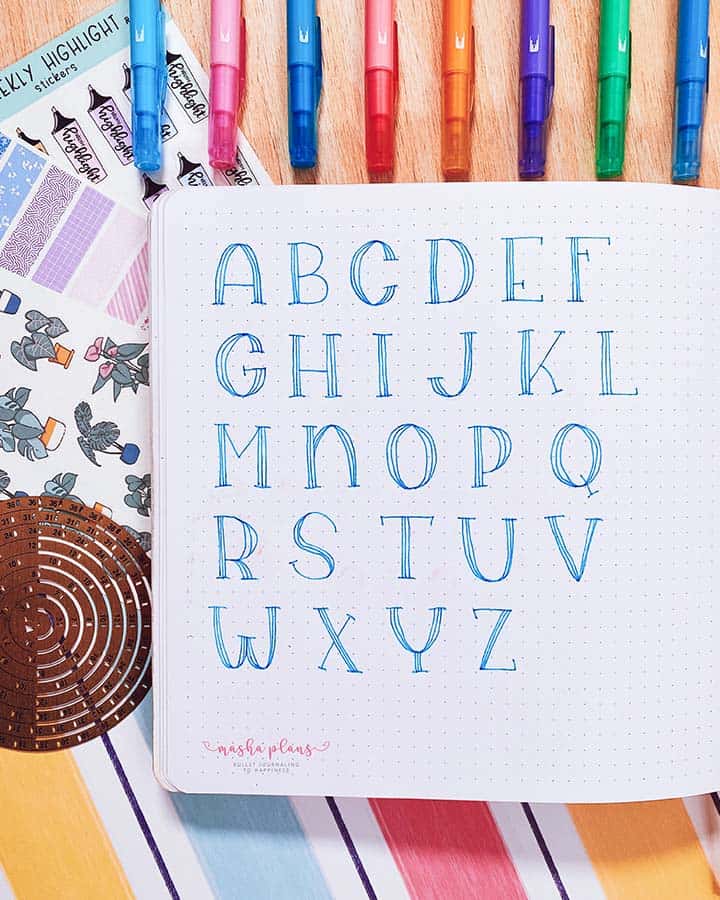 EKLY HIGHLIGHT
stickers
highlight
highlight
highlight
highlight
highlight
A B C D E F
G H I J K L
M N O P Q
R S T U V
W X Y Z
masha plans
BULLET JOURNALING
TO HAPPINESS